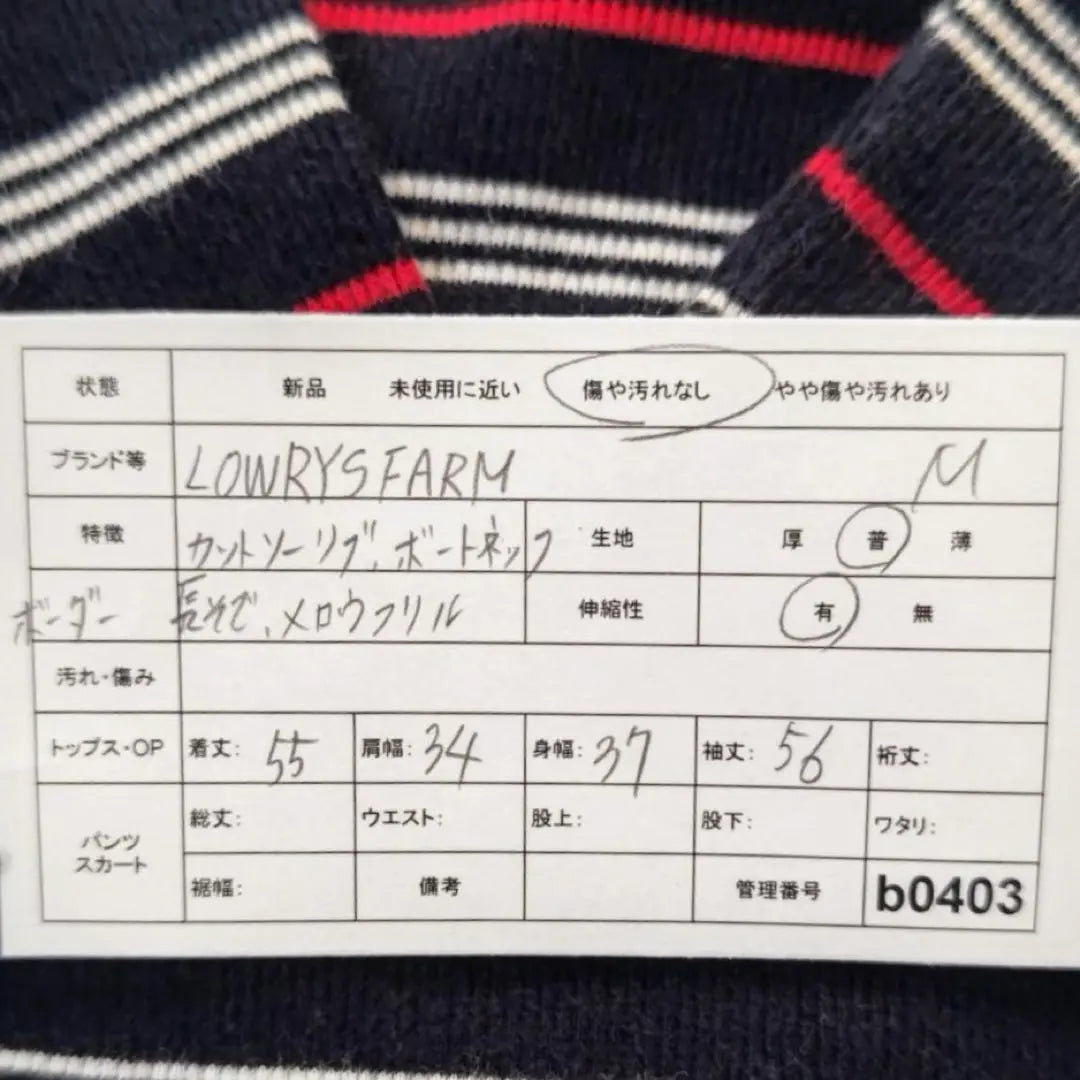 状態 新品 未使用に近い 傷や汚れなし やや傷や汚れあり
ブランド等 LOWRYS FARM M
特徴 カットソーリブ、ボートネック 生地 厚 普 薄
ボーダー 長そで、メロウフリル 伸縮性 有 無
汚れ・傷み
トップス・OP 着丈: 55 肩幅: 34 身幅: 37 袖丈: 56 裄丈:
パンツ スカート 総丈: ウエスト: 股上: 股下: ワタリ:
裾幅: 備考 管理番号 b0403